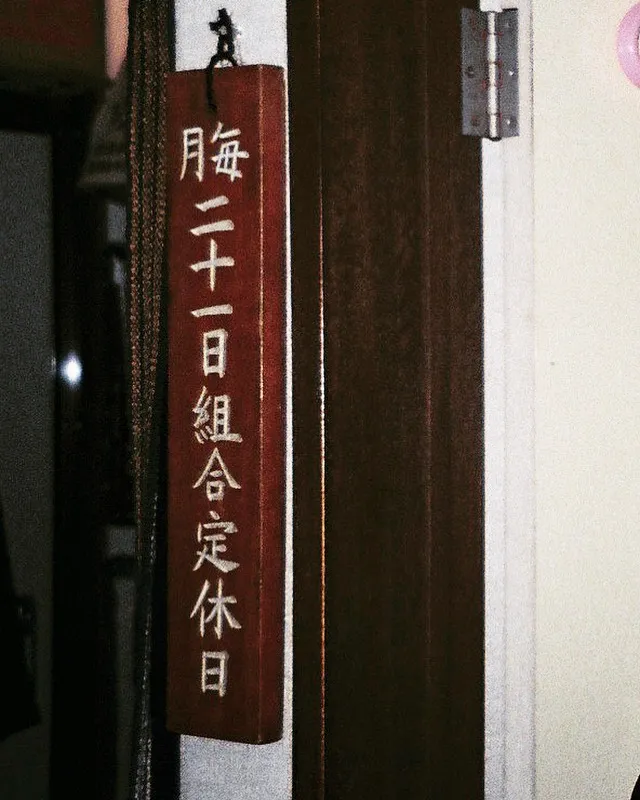 毎月二十一日組合定休日